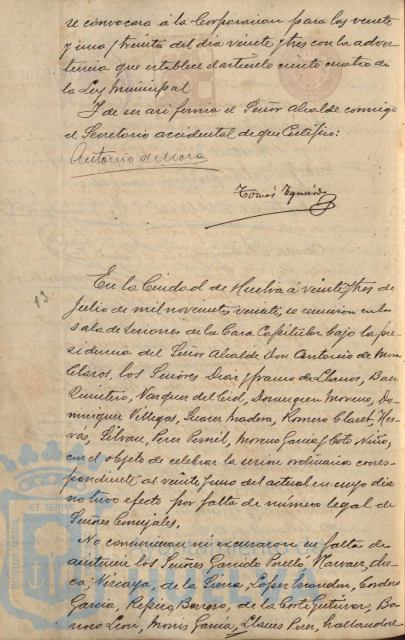 se convocara á la Corporacion para las veinte
y una y treinta del dia veinte y tres con la adver
tencia que establece el articulo ciento cuatro de
la Ley Municipal
Y de ser asi firma el Señor Alcalde conmigo
el Secretario accidental de que Certifico:
Antonio de Mora
Tomás Izquierdo
13
En la Ciudad de Huelva á veinte y tres de
Julio de mil novecientos veinte, se reunieron en la
sala de sesiones de la Casa Capitular bajo la pre
sidencia del Señor Alcalde Don Antonio de Mora
Claros, los Señores Diaz y Franco de Llanos,
Quintero, Vazquez del Cid, Dominguez Moreno, Do
minguez Villegas, Suarez Romero Claret, Her
vás, Perez Moreno Garcia y Coto Nuño,
con el objeto de celebrar la sesion ordinaria corres
pondiente al veinte y uno del actual en cuyo dia
no tuvo efecto por falta de número legal de
Señores Concejales.
No concurrieron ni escusaron su falta de
asistencia los Señores Garrido Perelló, Narvaez,
Vizcaya, de la Lopez Cordero
Garcia, Barroso, de la Corte Gutierrez,
Leon, Garcia, Perez, hallandose
ET TERRE
PORTUS MARIS